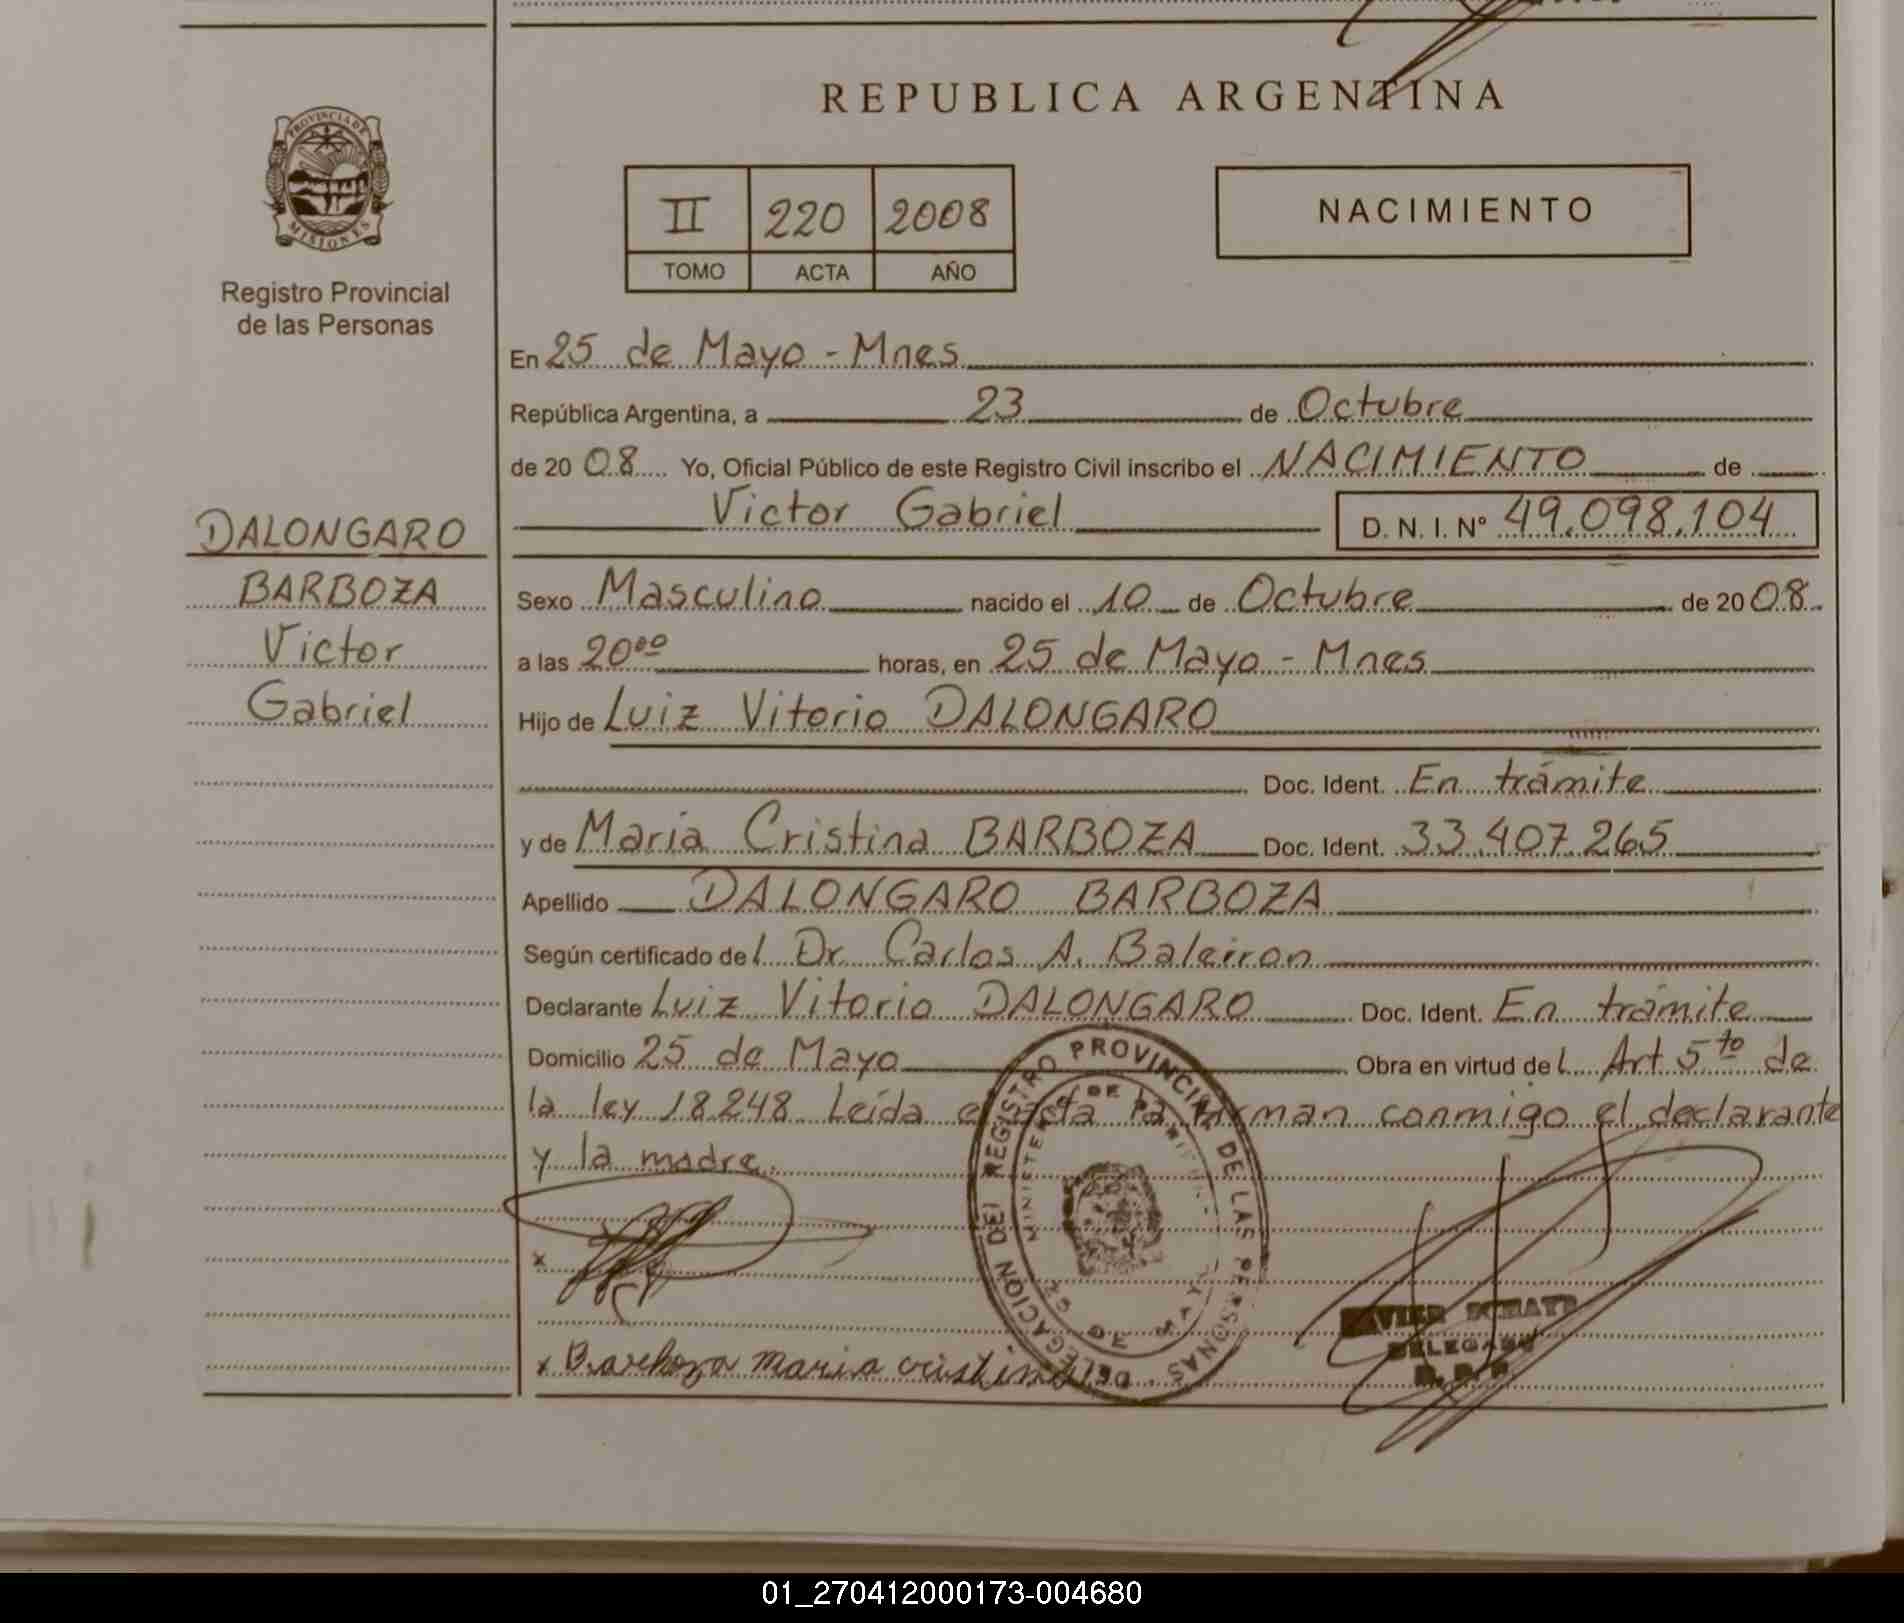 REPUBLICA ARGENTINA
PROVINCIA DE
MISIONES
Registro Provincial
de las Personas
II 220 2008
TOMO ACTA AÑO
NACIMIENTO
En 25 de Mayo - Mnes
República Argentina, a 23 de Octubre
de 2008 Yo, Oficial Público de este Registro Civil inscribo el NACIMIENTO de
Victor Gabriel D. N. I. N° 49.098.104
DALONGARO
BARBOZA
Victor
Gabriel
Sexo Masculino nacido el 10 de Octubre de 2008
a las 20⁰⁰ horas, en 25 de Mayo - Mnes
Hijo de Luiz Vitorio DALONGARO
Doc. Ident. En trámite
y de María Cristina BARBOZA Doc. Ident. 33.407.265
Apellido DALONGARO BARBOZA
Según certificado del Dr. Carlos A. Baleirron
Declarante Luiz Vitorio DALONGARO Doc. Ident. En trámite
Domicilio 25 de Mayo Obra en virtud del Art 5to de
la ley 18248 Leída el acta la firman conmigo el declarante
y la madre.
DELEGACION DEL REGISTRO PROVINCIAL DE LAS PERSONAS
MINISTERIO DE
25 DE MAYO
x
x Barboza maria cristina
DELEGADO
R. P. P.
01_270412000173-004680